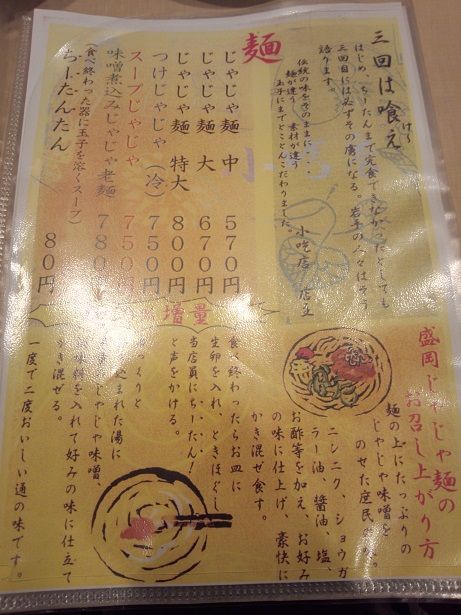 三回は喰え
はじめ、ちーたんまで完食できなかったとしても
三回目には必ずその虜になる。岩手の人々はそう
語ります。
伝統の味をそのままに…
麺が違う 素材が違う
玉子にまでとことんこだわりました
小吃店 店主
麺
じゃじゃ麺 中 570円
じゃじゃ麺 大 670円
じゃじゃ麺 特大 800円
つけじゃじゃ(冷) 750円
スープじゃじゃ 750円
味噌煮込みじゃじゃ老麺 780円
(食べ終わった器に玉子を溶くスープ)
ちーたんたん 80円
増量
盛岡じゃじゃ麺の
お召し上がり方
麺の上にたっぷりの
じゃじゃ味噌を
のせた庶民
ニンニク、ショウガ
ラー油、醤油、塩、
お酢等を加え、お好み
の味に仕上げ、豪快に
かき混ぜ食す。
食べ終わったらお皿に
生卵を入れ、ときほぐし
当店員に「ちーたん!」
と声をかける。
込まれた湯に
じゃじゃ味噌、
味料を入れて好みの味に仕立て
かき混ぜる。
一度で二度おいしい通の味です。